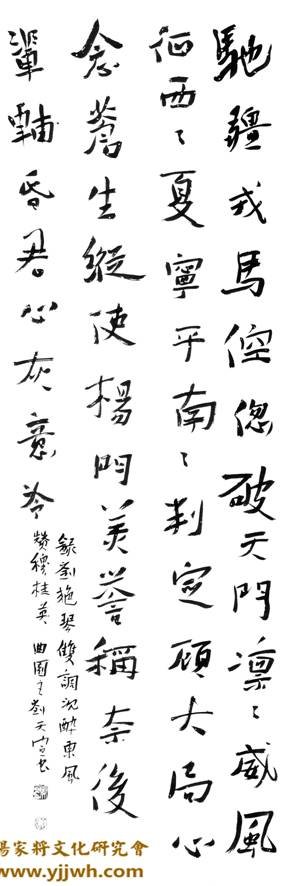 馳疆戎馬倥偬破天門凛〻威風
征西〻夏寧平南〻判定顧大局心
念蒼生縱使楊門美譽稱奈後
輩輔昏君心灰意冷
錄劉施琴雙調沉醉東風
贊穆桂英 曲國書劉天寶書
楊家將文化研究會
www.yjjwh.com